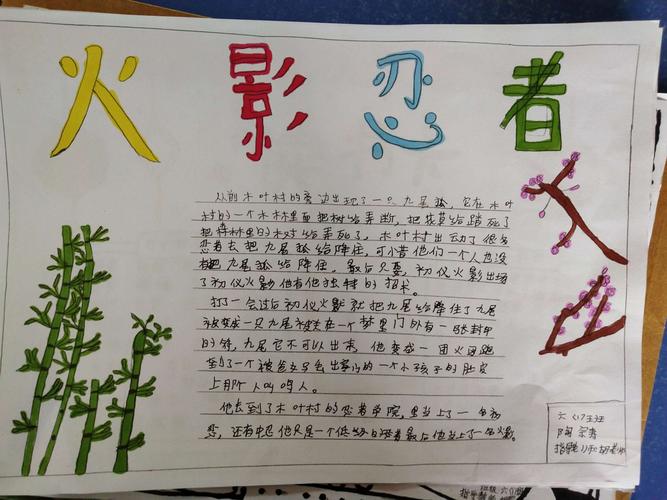 火影忍者
从前木叶村的旁边出现了一只九尾狐，它在木叶
村的一个木林里面把树给弄断，把花草给踏死了
把森林里的树给弄死了，木叶村出动了很多
忍者去把九尾狐给降住，可惜他们一个人也没
把九尾狐给降住，最后只要初代火影出场
了初代火影他有他独特的招术。
打了一会过后初代火影就把九尾给降住了九尾
被变成一只九尾被关在一个梦里门外有一张封印
的符，九尾它不可以出来，他变成一团火
到了一个被爸爸的一个小孩子的肚皮
上那个人叫鸣人。
他去到了木叶村的忍者学院，里当上了一名初
忍，还有中忍他只是一个低级的忍者最后他当上了一名火影
六(1)班
陶
指导